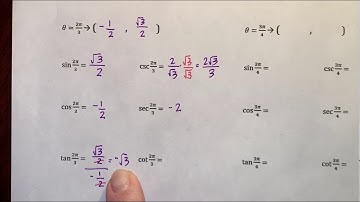 θ = 2π/3 → ( -1/2 , √3/2 ) θ = 3π/4 → ( , )
sin 2π/3 = √3/2 csc 2π/3 = 2/√3 · √3/√3 = 2√3/3 sin 3π/4 = csc 3π/4 =
cos 2π/3 = -1/2 sec 2π/3 = -2 cos 3π/4 = sec 3π/4 =
tan 2π/3 = (√3/2)/(-1/2) = -√3 cot 2π/3 = tan 3π/4 = cot 3π/4 =